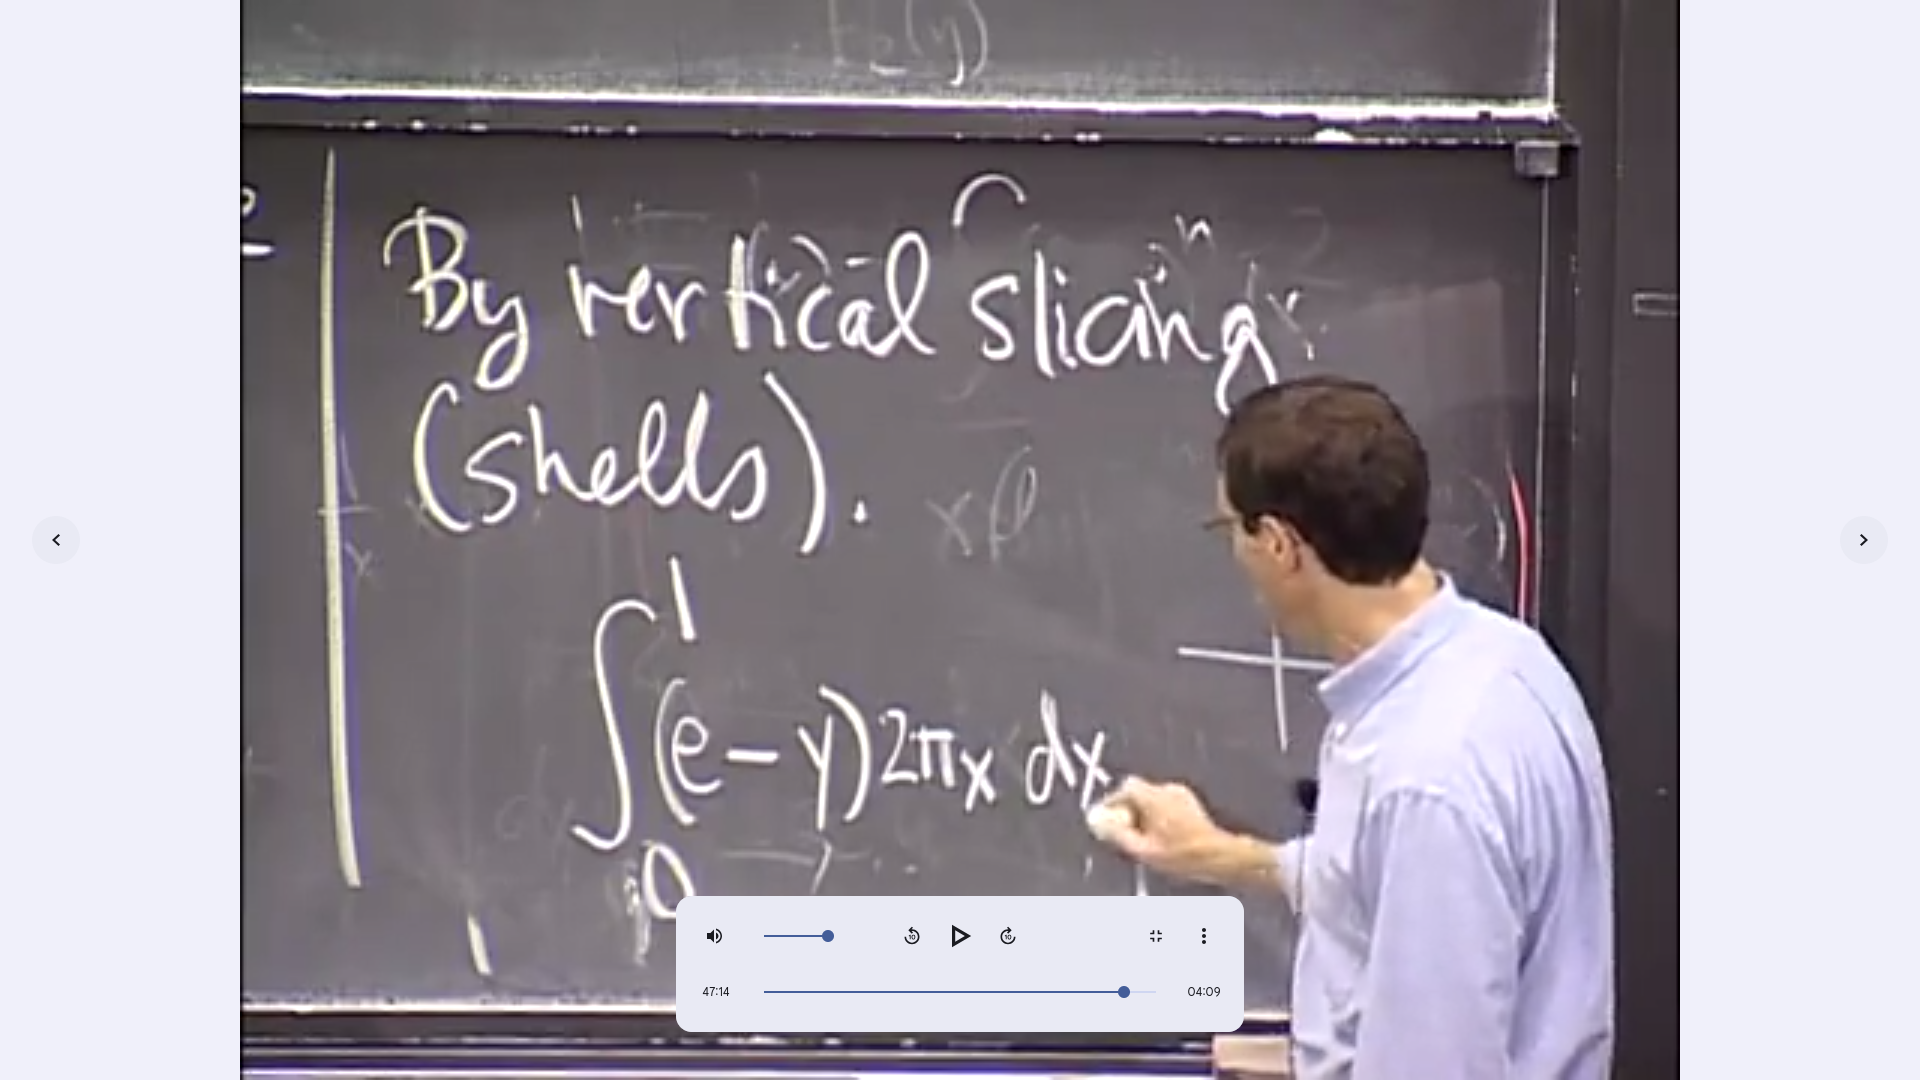 By vertical slicing
(shells).
∫₀¹ (e − y) 2πx dx
47:14
04:09